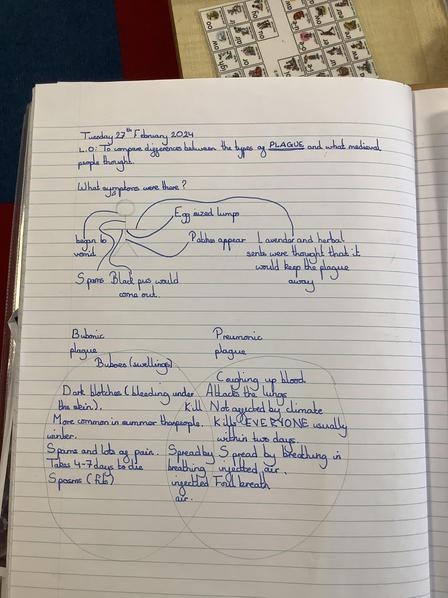 Tuesday 27th February 2024
L.O: To compare differences between the types of PLAGUE and what medieval
people thought.
What symptoms were there?
Egg sized lumps
began to
vomit
Patches appear
Lavender and herbal
sents were thought that it
would keep the plague
away
Spams
Black pus would
come out.
Bubonic
plague
Pneumonic
plague
Buboes (swellings)
Coughing up blood
Dark blotches (bleeding under
the skin).
Attacks the lungs
Kill
people.
Not affected by climate
More common in summer than
winter.
Kills EVERYONE usually
within two days.
Spams and lots of pain.
Takes 4-7 days to die
Spasms (fits)
Spread by
breathing
injected
air.
Spread by breathing in
injected air.
Foul breath